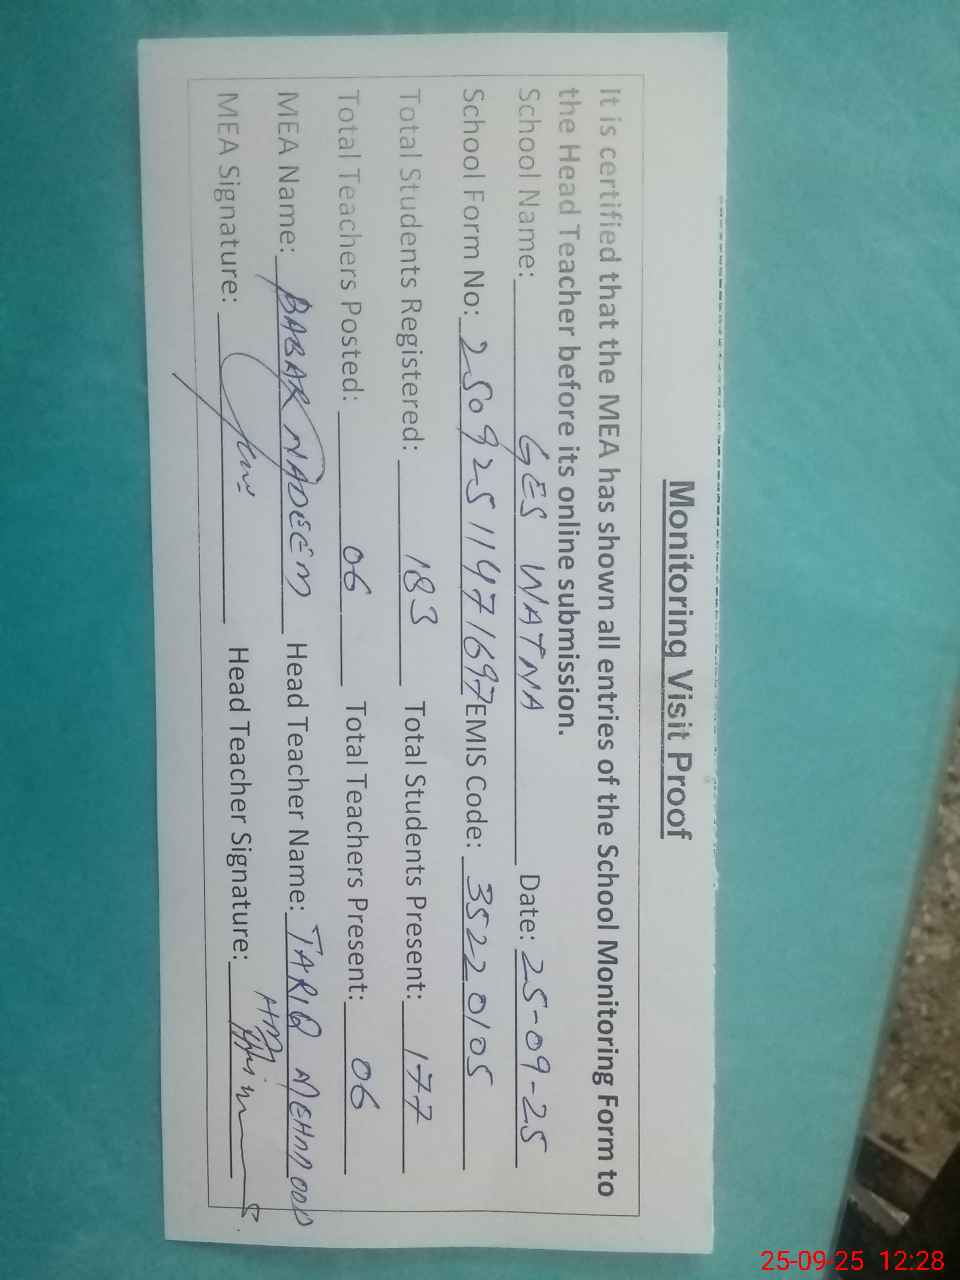 Monitoring Visit Proof
It is certified that the MEA has shown all entries of the School Monitoring Form to
the Head Teacher before its online submission.
School Name: GES WATNA Date: 25-09-25
School Form No: 250925114971697 EMIS Code: 35220105
Total Students Registered: 183 Total Students Present: 177
Total Teachers Posted: 06 Total Teachers Present: 06
MEA Name: BABAR NADEEM Head Teacher Name: TARIQ MEHMOOD
MEA Signature: Head Teacher Signature:
25-09-25 12:28